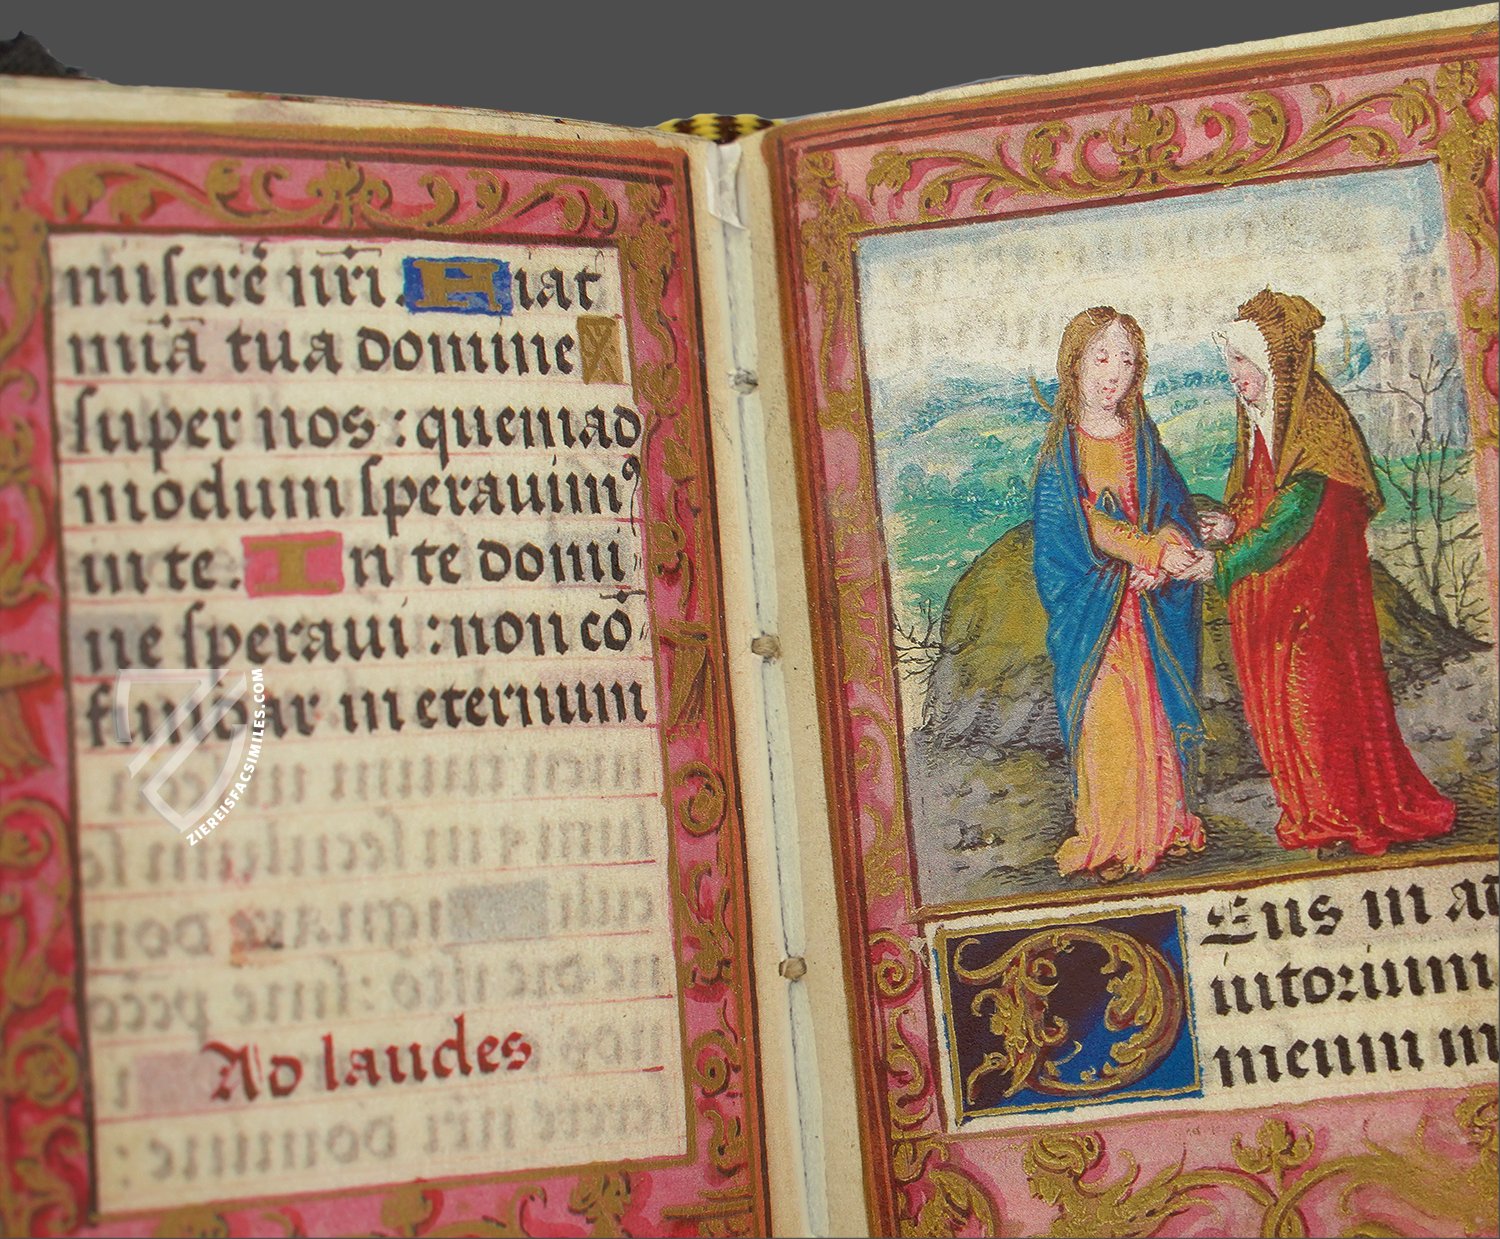 miserẽ nr̃i. Fiat
mĩa tua domine
super nos : quemad
modum sperauimꝰ
in te. In te domi
ne speraui : non cõ
fundar in eternum
Ad laudes
Deus in ad
iutorium
meum in
ZIEREISFACSIMILES.COM